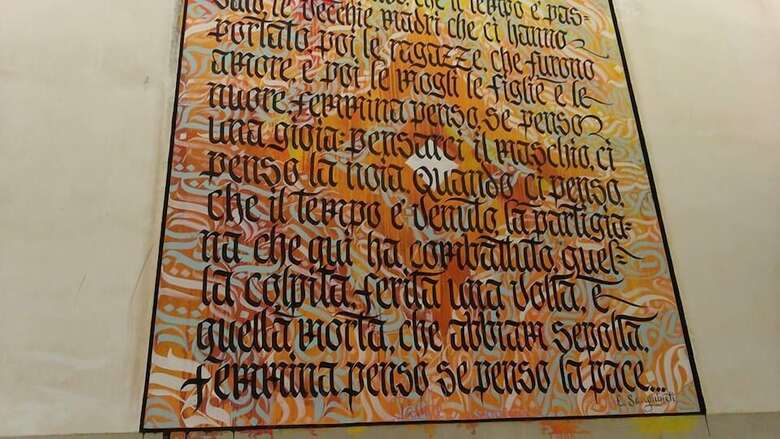 che il tempo è pas-
sato, le vecchie madri che ci hanno
portato, poi le ragazze, che furono
amore, e poi le mogli le figlie e le
nuore, femmina penso, se penso
una gioia: pensarci il maschio, ci
penso la noia. Quando ci penso,
che il tempo è venuto, la partigia-
na che qui ha combattuto, quel-
la colpita, ferita una volta, e
quella morta, che abbiam sepolta,
femmina penso, se penso la pace...
E. Sanguineti